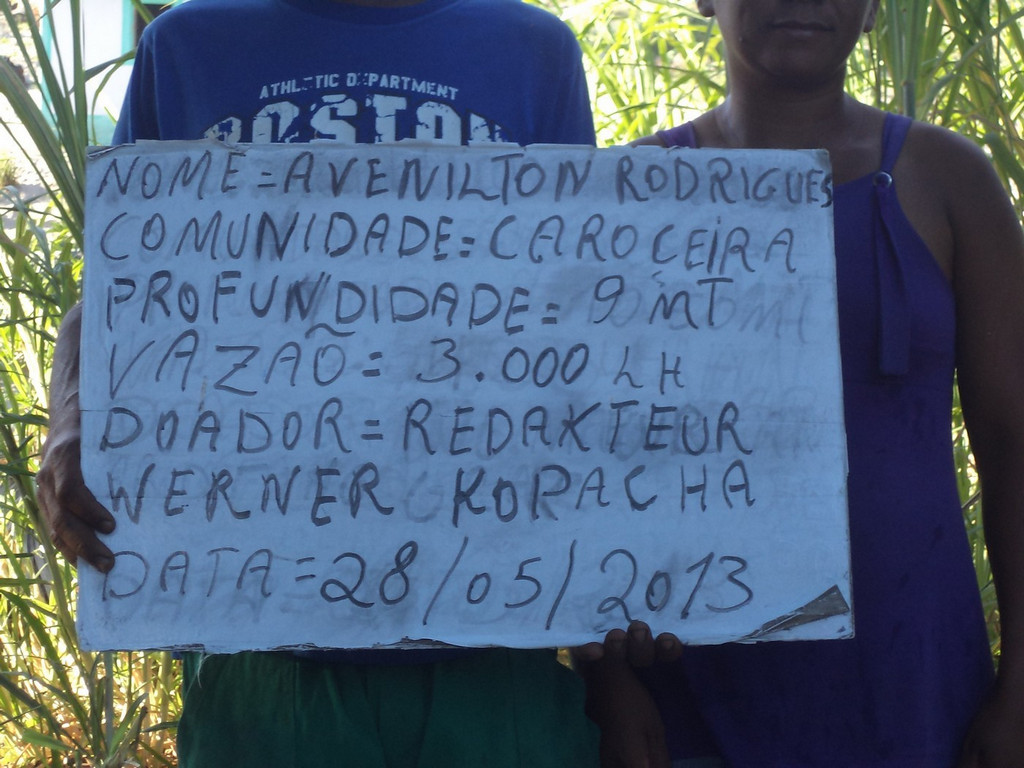 ATHLETIC DEPARTMENT
BOSTON
NOME = AVENILTON RODRIGUES
COMUNIDADE = CAROCEIRA
PROFUNDIDADE = 9 MT
VAZÃO = 3.000 LH
DOADOR = REDAKTEUR
WERNER KOPACHA
DATA = 28/05/2013